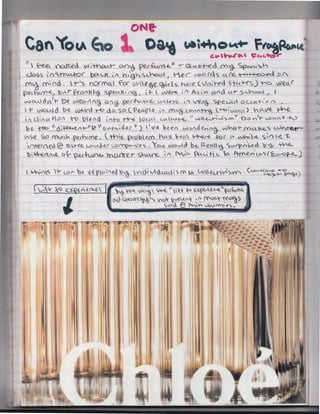 ONE
Can You Go 1 Day without Fragrance
cultural Factor
"I feel naked without any perfume" - quoted my Spanish
class instructor back in highschool. Her words are on
my mind. It's normal for college girls here (United States) to wear
perfume, but frankly speaking, if I were in Asia and at school, I
wouldn't be wearing any perfume unless it's very special occasion
It would be weird to do so (People in my country have the
inclination to blend into the local culture, "collectivism" Don't want to
be too "different" & "outsider") I've been wondering what makes
use so much perfume. (this problem has been there for a while since I
interned @ Estee Lauder Companies. You would be Really Surprised by the
difference of perfume market share in Asia Pacific & Americas/Europe.)
I think it can be explained by individualism & collectivism (continue to
page)
Gift to experience
By the way, the "Gift to experience" perfume
ad strategy's not present in most mags
and @ main
Chloé